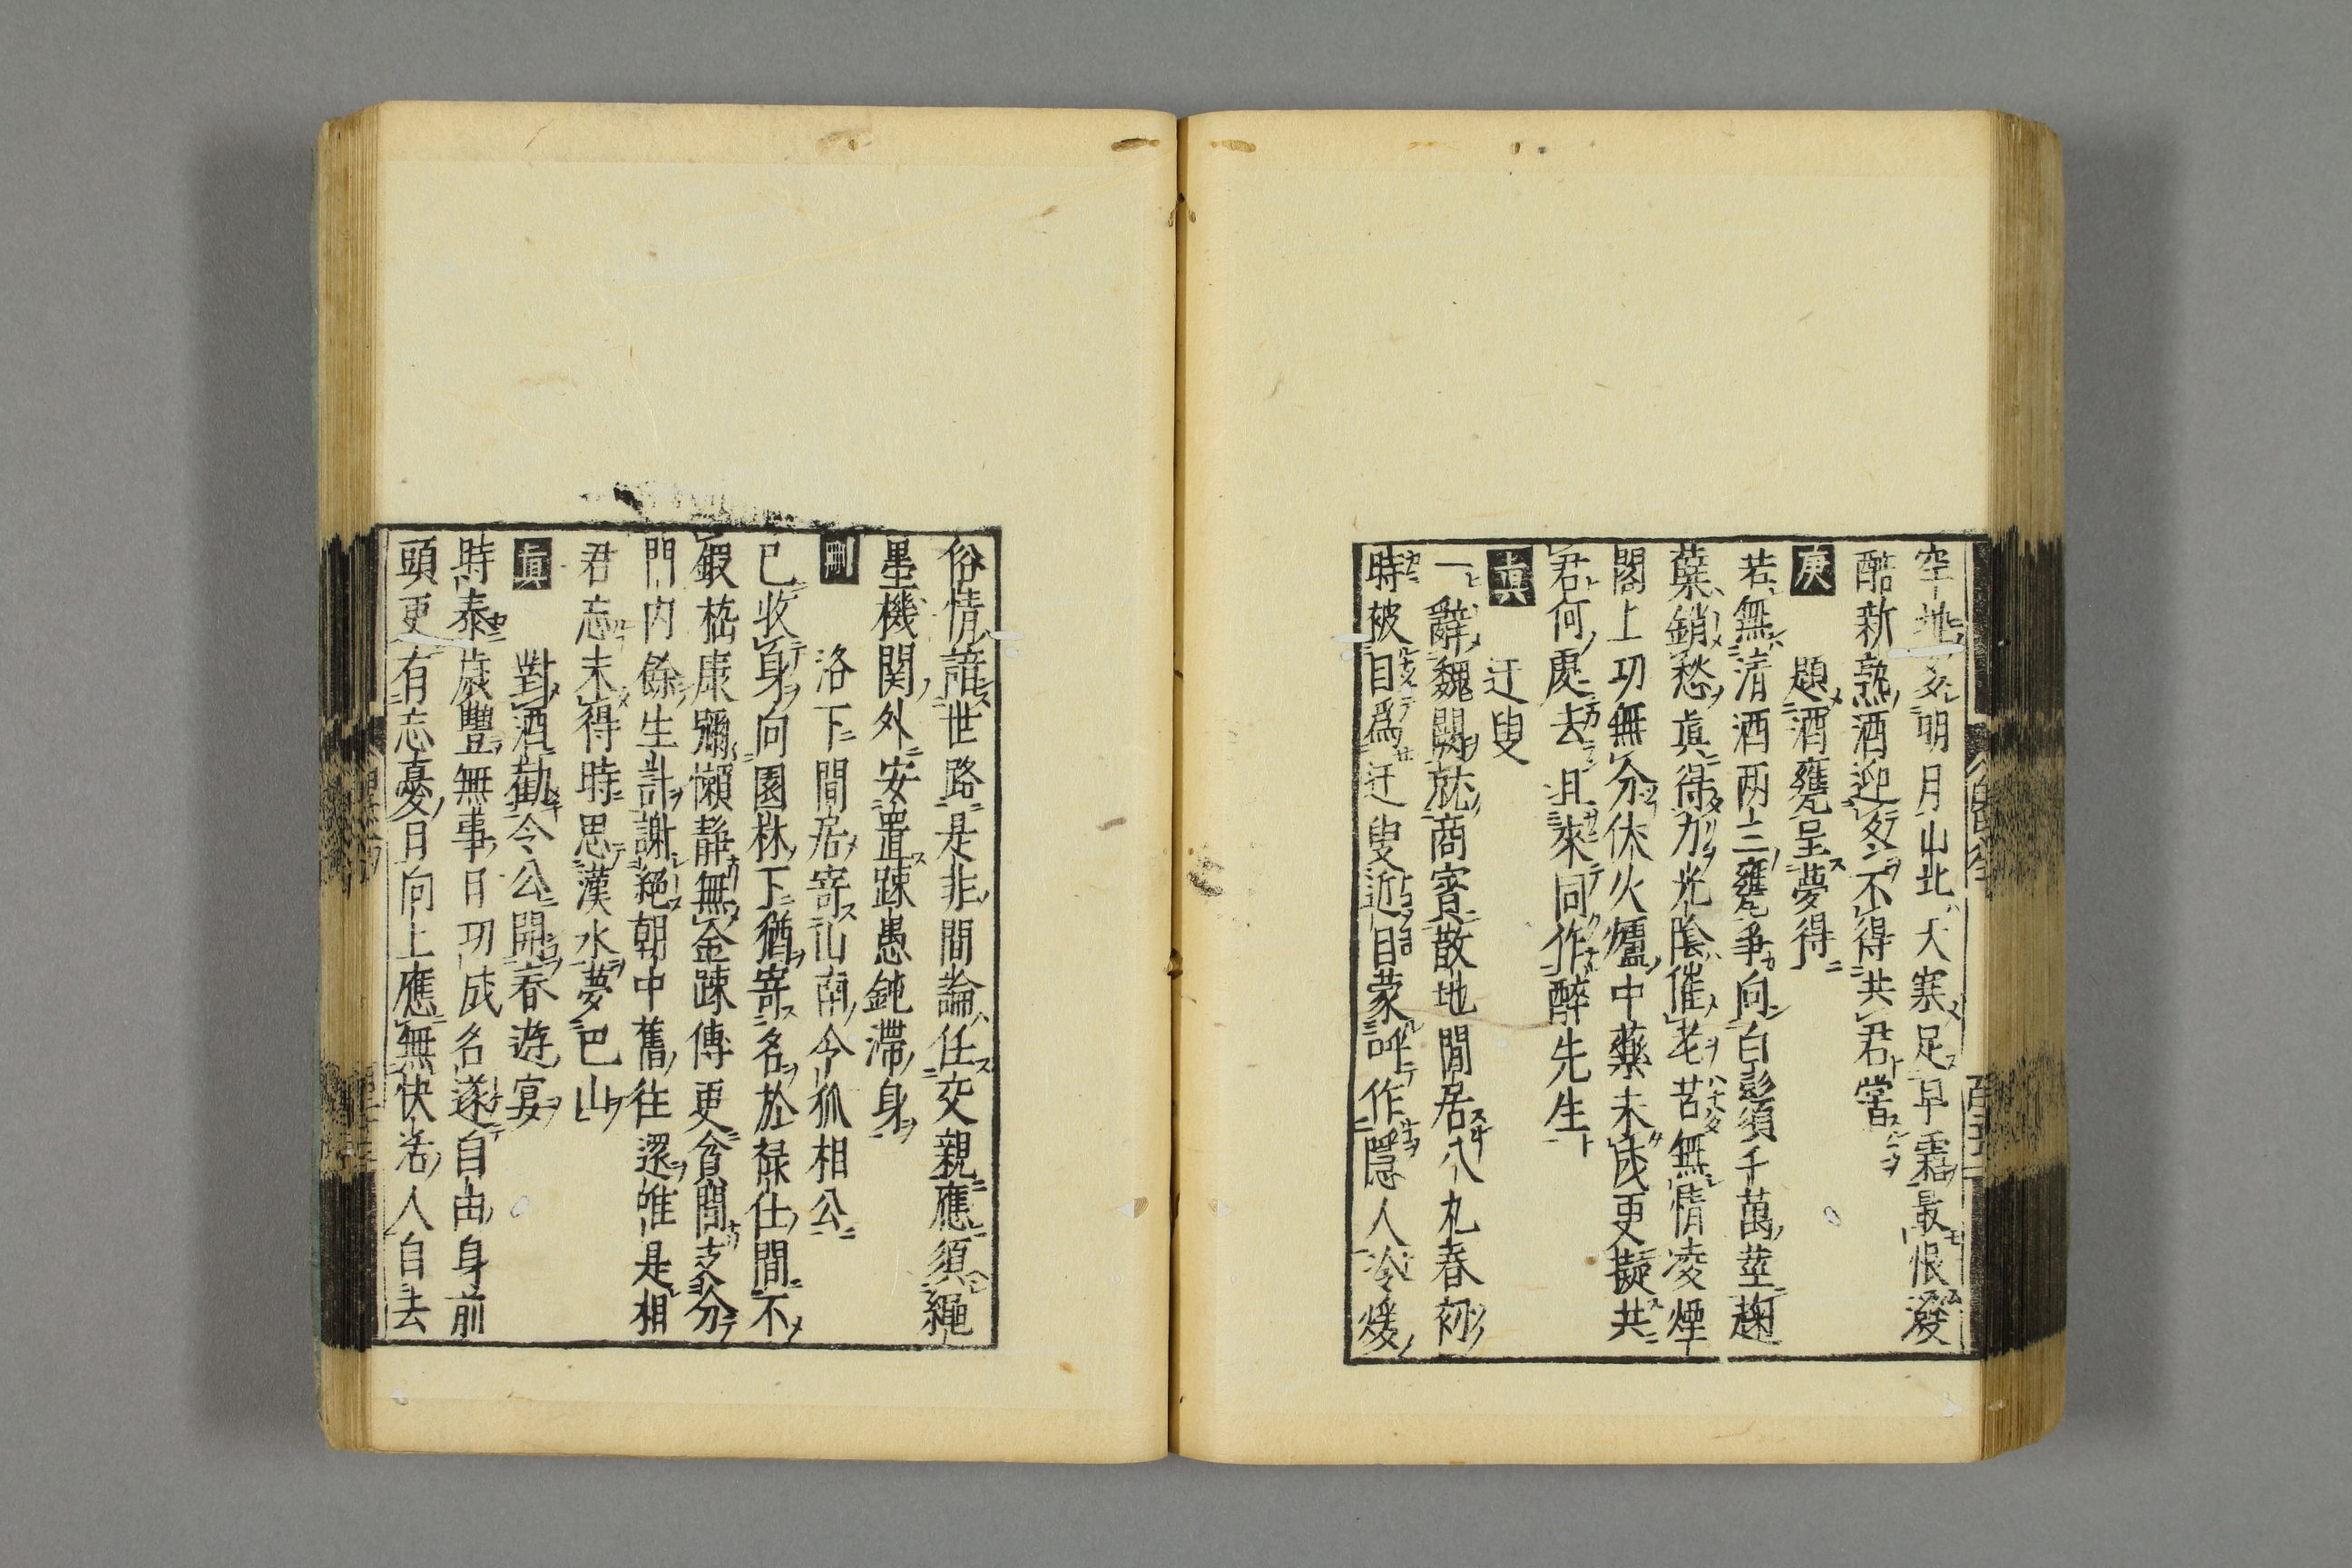 空地多明月山北天寒足早霜最恨潑
醅新熟酒迎冬不得共君嘗
庚
題酒甕呈夢得
若無清酒两三甕爭向白髭須千萬莖麹
蘖銷愁真得力光陰催老苦無情凌煙
閣上功無分伏火爐中藥未成更擬共
君何處去且來同作醉先生
真
迂叟
一辭魏闕就商賓散地閒居八九春初
時被目為迂叟近日蒙呼作隱人冷煖
俗情諳世路是非閒論任交親應須繩
墨機関外安置踈愚鈍滯身
刪
洛下閒居寄山南令狐相公
已收身向園林下猶寄名於禄仕間不
鍜嵇康彌懶静無金踈傅更貧閒支分
門内餘生計謝絕朝中舊往還唯是相
君忘未得時思漢水夢巴山
真
對酒勸令公開春遊宴
時泰歳豐無事日功成名遂自由身前
頭更有忘憂日向上應無快活人自去